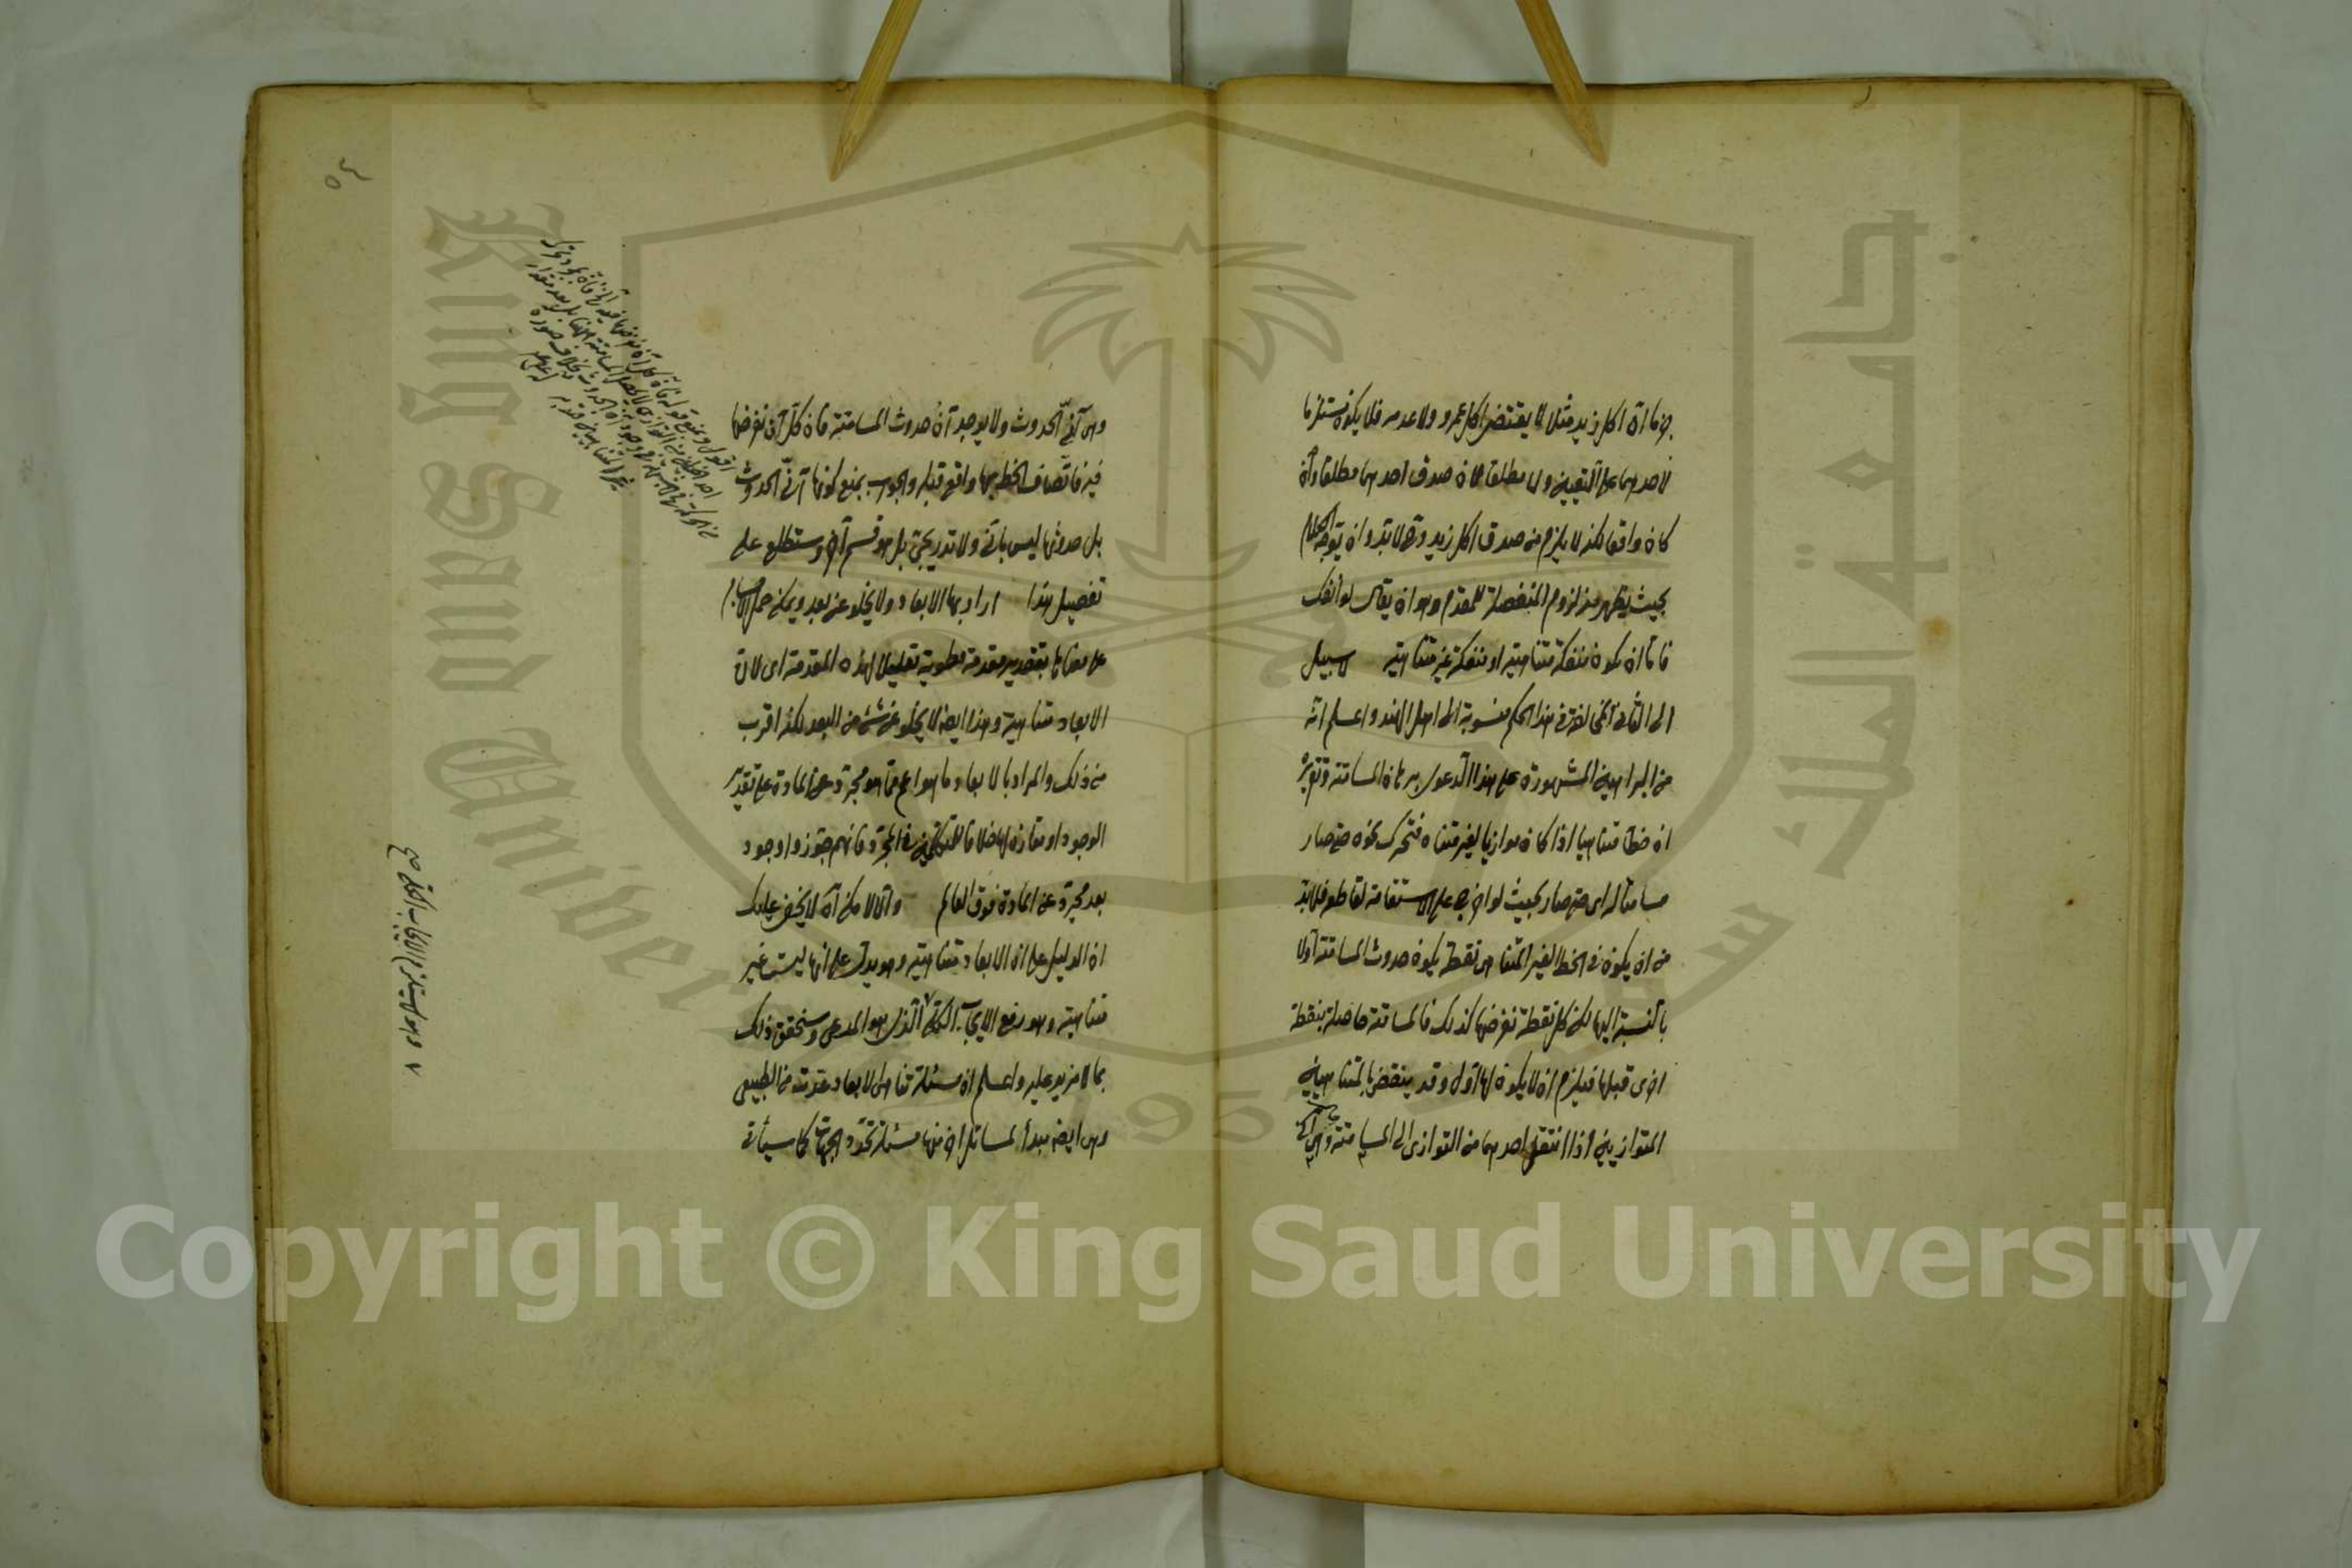 جزما ان اكل زيد مثلا لا يقتضي اكل عمرو ولا عدمه فلا يكون مستلزما
لاحدهما على التعيين ولا مطلقا لان صدق احدهما مطلقا وان
كان واقعا لكنه لا يلزم من صدق اكل زيد وهو لا بد وان يتوجه الكلام
بحيث يظهر منه لزوم المنفصلة للمقدم وهو ان يقال لو انفك
فاما ان يكون منفكة متناهية او منفكة غير متناهية لا سبيل
الى الثاني في هذا الحكم منسوبة الى اهل الهند واعلم انه
من البراهين المشهورة على هذا الدعوى برهان المسامتة وتقريره
ان خطا متناهيا اذا كان موازيا لغير متناه فتحرك نحوه حتى صار
مسامتا له اي حتى صار بحيث لو اخرج على الاستقامة لقاطعه فلا بد
من ان يكون في الخط الغير المتناهي نقطة يكون حدوث المسامتة اولا
بالنسبة اليها لكن كل نقطة نفرضها كذلك فالمسامتة حاصلة بنقطة
اخرى قبلها فيلزم ان لا يكون لها اول وقد ينقض بالمتناهيين
المتوازيين اذا انتقل احدهما من التوازي الى المسامتة
٥٤
وهي آني الحدوث ولا يوجد آن حدوث المسامتة فان كل آن نفرضها
فيه فاتصاف الخط بها واقع قبله والجواب بمنع كونها آني الحدوث
بل حدوثها ليس بآني ولا تدريجي بل هو قسم آخر وستطلع على
تفصيل هذا اراد بها الابعاد ولا يخلو عن بعد ويمكن حمل
على معناها بتقدير مقدمة مطوية تعليلا لهذه المقدمة اي لان
الابعاد متناهية وهذا ايضا لا يخلو عن شئ من البعد لكنه اقرب
من ذلك والمراد بالابعاد ما هو اعم مما هو مجرد عن المادة على تقدير
الوجود او مقارنة لها خلافا للمتكلمين في المجرد فانهم جوزوا وجود
بعد مجرد عن المادة فوق العالم والا لامكن آه لا يخفى عليك
ان الدليل على ان الابعاد متناهية وهو يدل على انها ليست غير
متناهية وهو رفع الايجاب الكلي الذي هو المدعى وسنحقق ذلك
بما لا مزيد عليه واعلم ان مسئلة تناهي الابعاد عدت من الطبيعي
وهي ايضا مبدأ لمسائل اخر منها مسئلة تحدد الجهات كما سيأتي
٧ وهو لا يستلزم الايجاب الكلي صح
Copyright © King Saud University
King Saud University
جامعة الملك سعود
1957